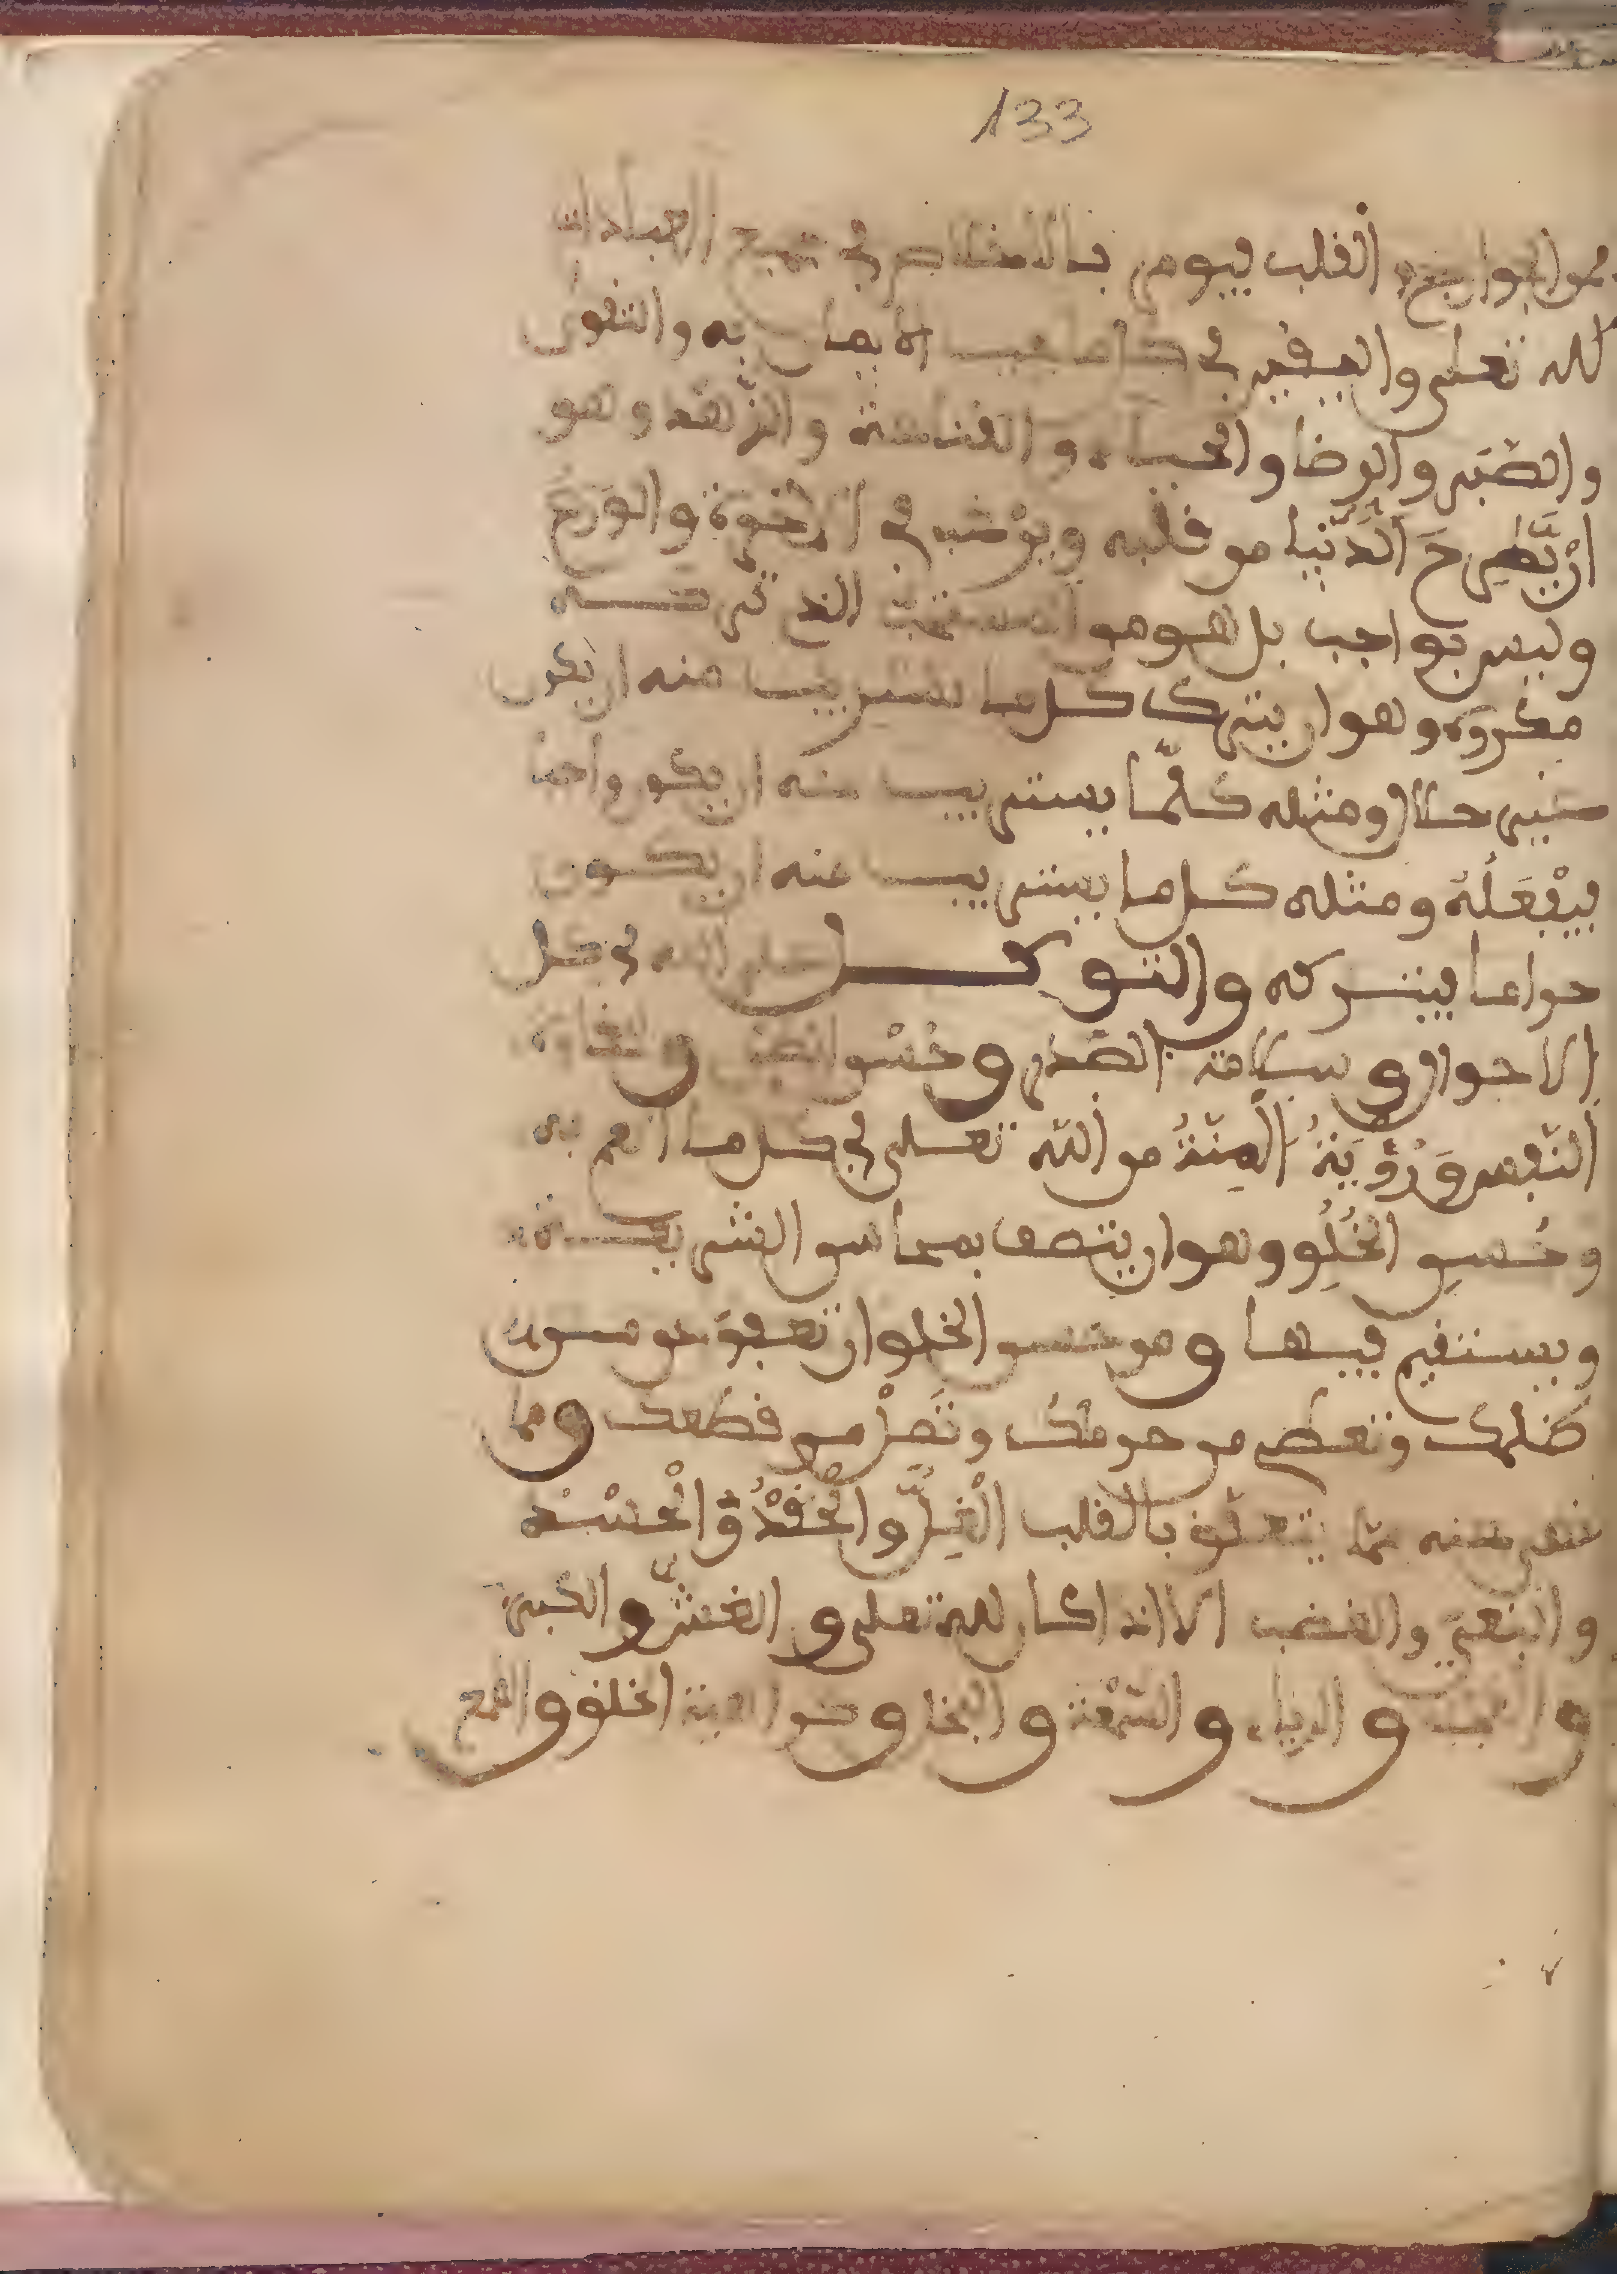 133
من الجوارح القلب فيومر بالاخلاص في جميع العبادات
لله تعلى واليقين في كل ما يجب الايمان به والتقوى
والصّبر والرضا والحياء والقناعة والزّهد وهو
انْ يَّطرحَ الدّنيا من قلبه ويرْغب في الاخرة والورَعَ
وليس بواجب بل هو من المستحب الذي تركه
مكروه وهو ان يترك كل ما يستريب منه ان يكون
غير حلال ومثله كلّما يستريب منه ان يكون واجبا
فيفْعَلُه ومثله كل ما يستريب منه ان يكون
حراما فيتركه والتوكل على الله في كل
الاحوال وسلامة الصّدر وحُسْن الظن وسخاوة
النّفس وَرُؤْيَةُ الْمِنّةُ من الله تعلى في كل ما انعم به
وحُسنِ الخُلُقِ وهو ان يتصف بمحاسن الشريعة
ويستقيم فيها ومن حسن الخلق ان تعفوَ عن من
ظلمك وتعطي من حرمك وتَصِلْ من قطعك ومما
نهي عنه مما يتعلّق بالقلب الْغِلُّ والْحقْدُ وَالْحسْد
والبغي والغضب الا اذا كان لله تعلى والغشّ والكبر
والعجب والرياء والسّمْعة والبخل و الخلق والطمع